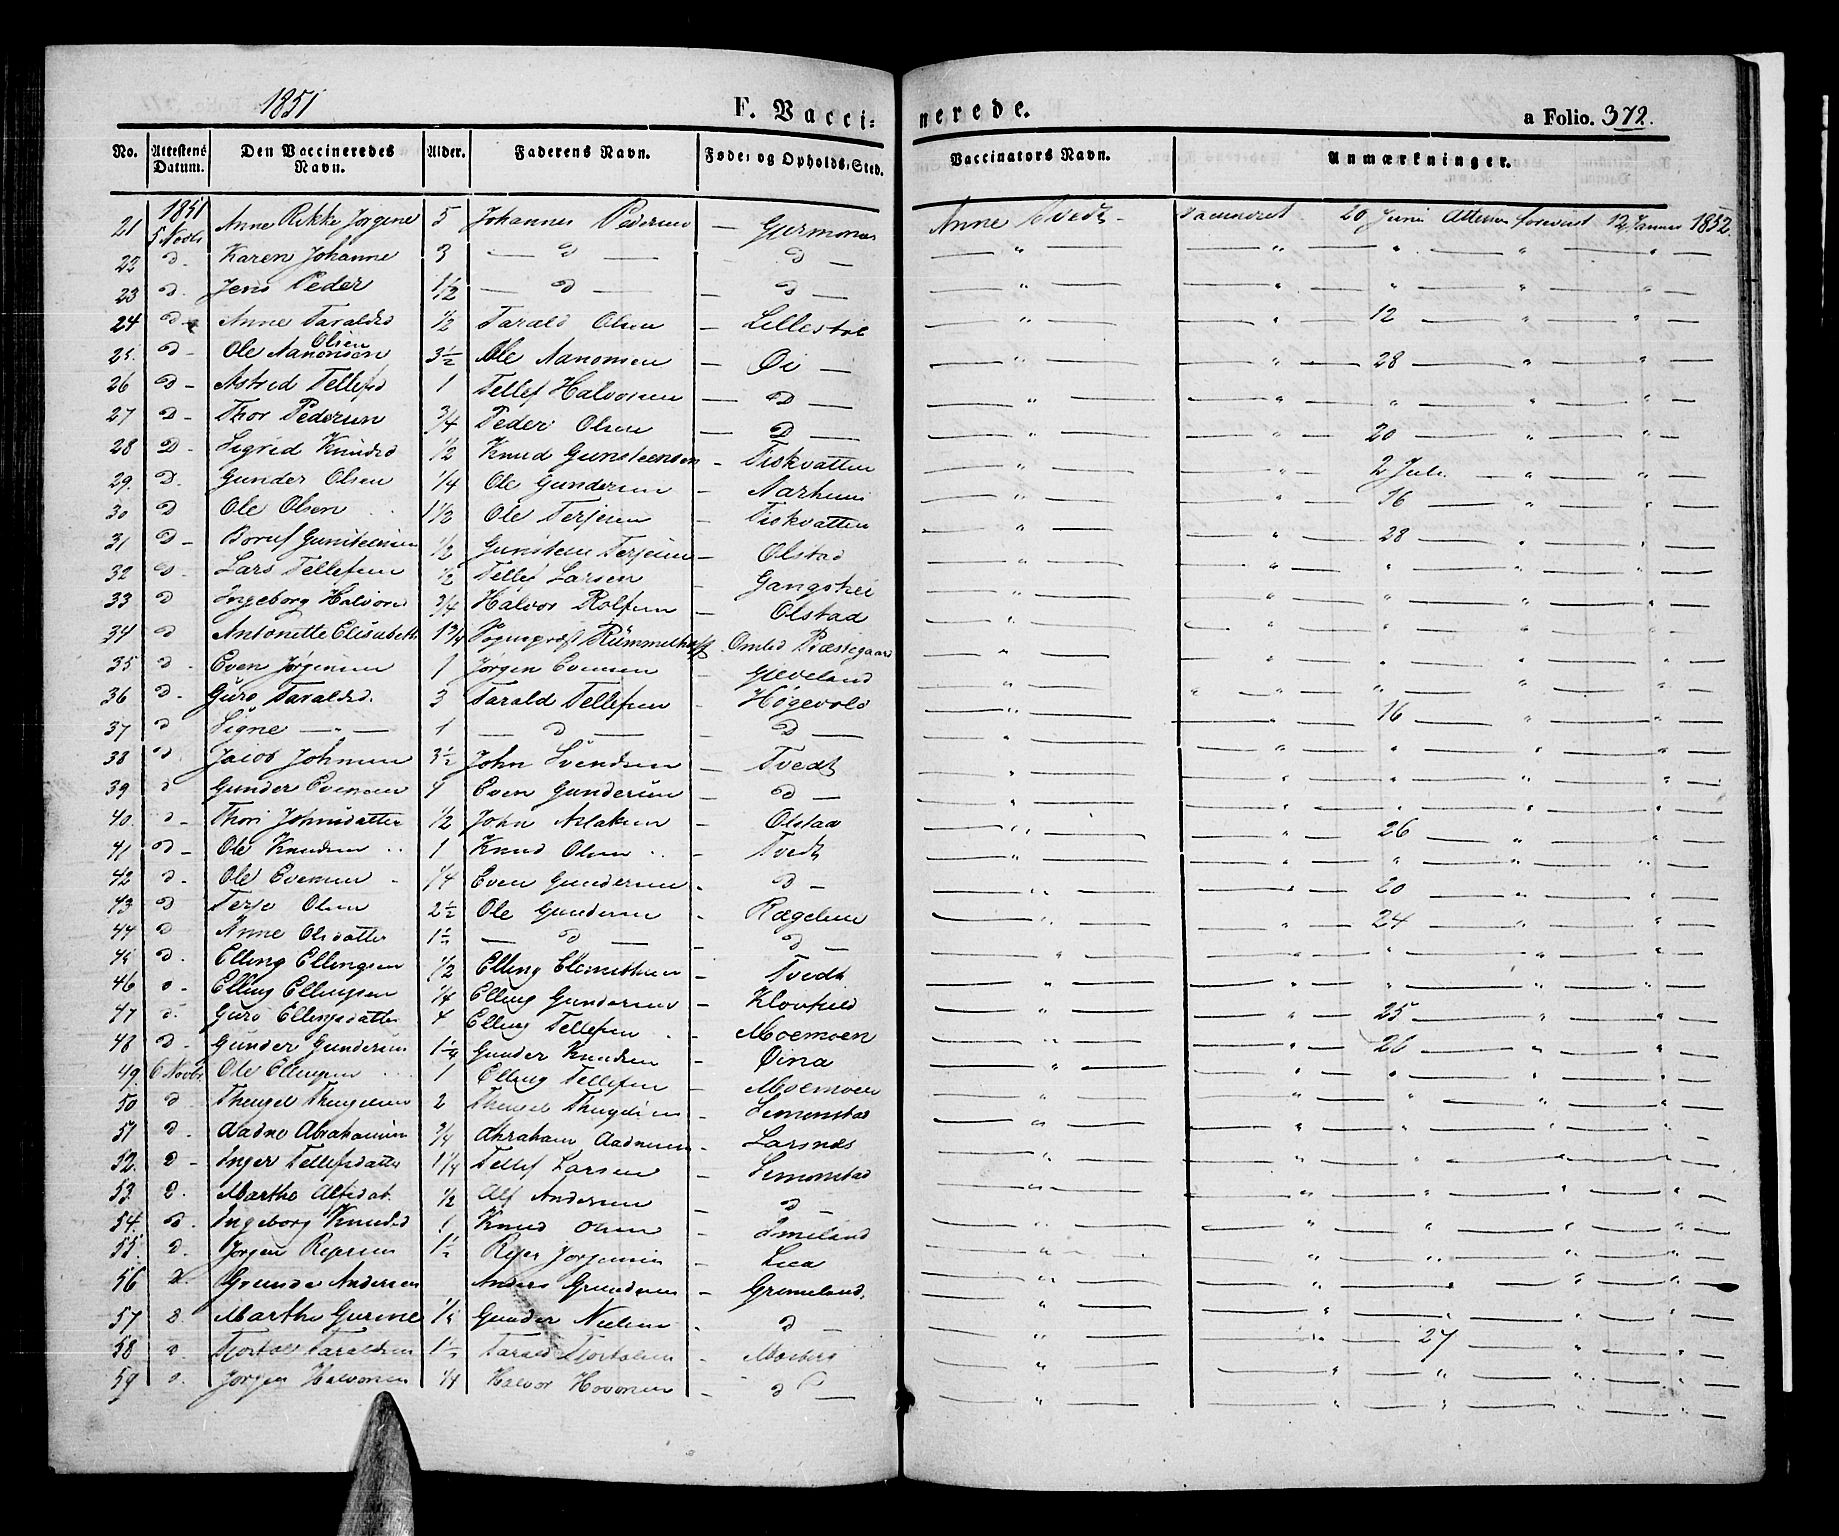 1851
F. Vaccinerede.
a Folio. 372.
No. Attestens Datum. Den Vaccineredes Navn. Alder. Faderens Navn. Føde- og Opholds-Sted. Vaccinators Navn. Anmærkninger.
1851
21 5 Novbr Anne Rikke Jørgine 5 Johannes Pedersen — Anne Tvedt — vaccineret 20 Juni Attesten 12 Januar 1852.
22 D - Karen Johanne 3 — D — D — " — " — " — " — "
23 D. Jens Peder 1 1/2 — D — — D — " — " — " — " — "
24 D - Anne Taraldsd 1/2 Tarald Olsen — Lillestøl — " — " — 12 — " — "
Olsen
25. D - Ole Aanonsen 3 1/2 Ole Aanonsen — Øi — " — " — 28 — " — "
26 D - Astrid Tellefsd 1 Tellef Halvorsen — D — " — " — " — " — "
27 D - Thor Pedersen 3/4 Peder Olsen — D — " — " — 20 — " — "
28 D - Sigrid Knudsd 1/2 Knud Gunsteensen — Tiskvatten — " — " — 2 Juli — " — "
29. D. Gunder Olsen 1/4 Ole Gundersen — Aarhuus — " — " — 16 — " — "
30 D Ole Olsen 1 1/2 Ole Terjesen — Tiskvatten — " — " — 28 — " — "
31 D - Gunsteensen 1/2 Gunsteen Terjesen — Olstad — " — " — " — " — "
32 D. Lars Tellefsen 1/2 Tellef Larsen — " — " — " — " — "
33 D Ingeborg Halvorsd 3/4 Halvor Rolfsen — Olstad — " — " — " — " — "
34 D Antonette Elisabeth 1 3/4 Sogneprest Rümmelhoff Omlid Præstegaard — " — " — " — " — "
35 D. Even Jørgensen 1 Jørgen Evensen — Gleveland — " — " — " — " — "
36 D - Guro Taraldsd. 3 Tarald Tellefsen — Høgevold — " — " — 16 — " — "
37 D Signe — " — 1 — D — — D — " — " — " — " — "
38 D Jacob Johnsen 3 1/2 John Svendsen — Tvedt — " — " — " — " — "
39 D Gunder Evensen 4 Even Gundersen — D — " — " — " — " — "
40. D - Thori Johnsdatter 1/2 John Aslaksen — Olstad — " — " — 26 — " — "
41 D - Ole Knudsen 1 Knud Olsen — Tvedt — " — " — " — " — "
42 D. Ole Evensen 1/4 Even Gundersen - D - — " — " — 20 — " — "
43 D Terje Olsen 2 1/2 Ole Gundersen - — " — " — 24 — " — "
44 D Anne Olsdatter 1 1/2 — D — - D — " — " — " — " — "
45 D. Elling Ellingsen 1/2 Elling — Tvedt — " — " — " — " — "
46 D Elling Ellingsen 1/4 Elling Gundersen — — " — " — 25 — " — "
47 D. Guro Ellingsdatter 4 Elling Tellefsen — Moemoen — " — " — 26 — " — "
48 D - Gunder Gundersen 1 1/4 Gunder Knudsen — Øina — " — " — " — " — "
49. 6 Novbr Ole Ellingsen 1 Elling Tellefsen — Moemoen — " — " — " — " — "
50 D 2 — Lemonstad — " — " — " — " — "
51 D. Aadne Abrahamsen 3/4 Abraham Aadnesen — Larsnæs — " — " — " — " — "
52. D - Inger Tellefsdatter 1 1/4 Tellef Larsen — Lemonstad — " — " — " — " — "
53. D. Marthe Alfsdat. 1/2 Alf Andersen — D — " — " — " — " — "
54. D. Ingeborg Knudsd 1 Knud Olsen — — " — " — " — " — "
55. D. Jørgen Reiersen 1 1/2 Reier Jørgensen — Liea — " — " — " — " — "
56 D. Andersen Anders — Grimeland. — " — " — " — " — "
57 D. Marthe Gurine 1/4 Gunder Nielsen - D — " — " — 27 — " — "
58 D Tjostol Taraldsen 1 1/2 Tarald Tjostolsen — — " — " — " — " — "
59 D. Jørgen Halvorsen 1/4 Halvor — D — " — " — " — " — "